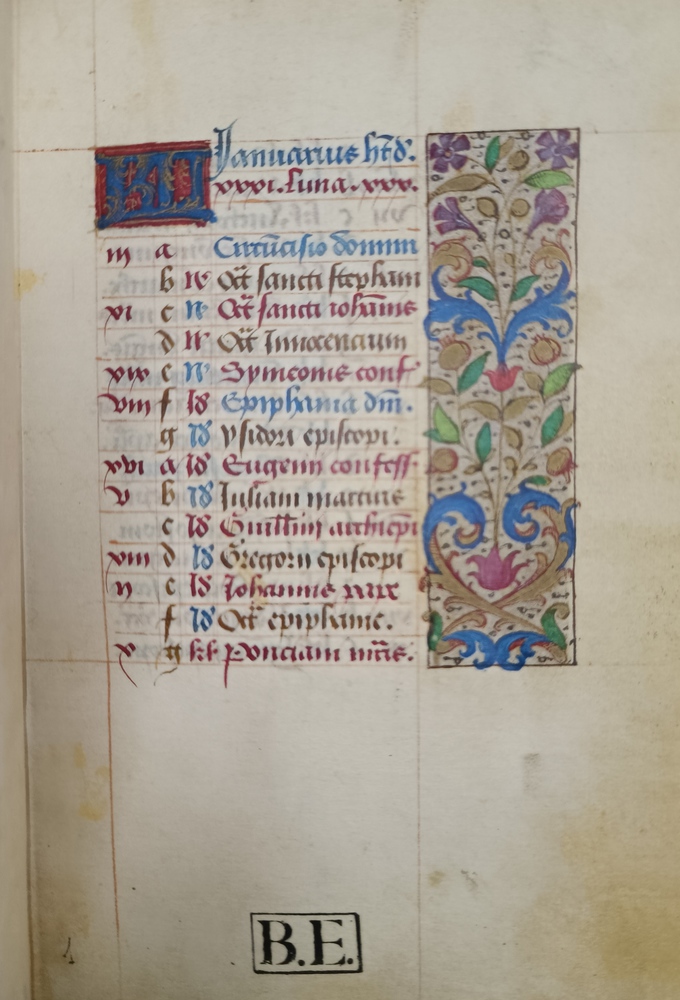 KL Januarius ht d.
xxxi. Luna. xxx.
iii a Circu̅cisio domini
b iv Oct̃ sancti stephani
xi c N̕ Oct̃ sancti ioha̅nis
d N̕ Oct̃ Innocencium
xix e N̕ Symeonis conf̕
viii f Id Epiphania dn̅i.
g Id ysidori episcopi.
xvi a Id Eugenii confess̕
v b Id Iuliani martiris
c Id Guill̅mi archiep̅i
xiii d Id Gregorii episcopi
ii e Id Iohannis pape
f Id Oct̃ epiphanie.
x g kl̕ Ponciani m̅ris.
B.E.
1